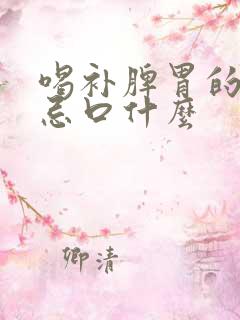 喝补脾胃的
忌口什麼
卿清